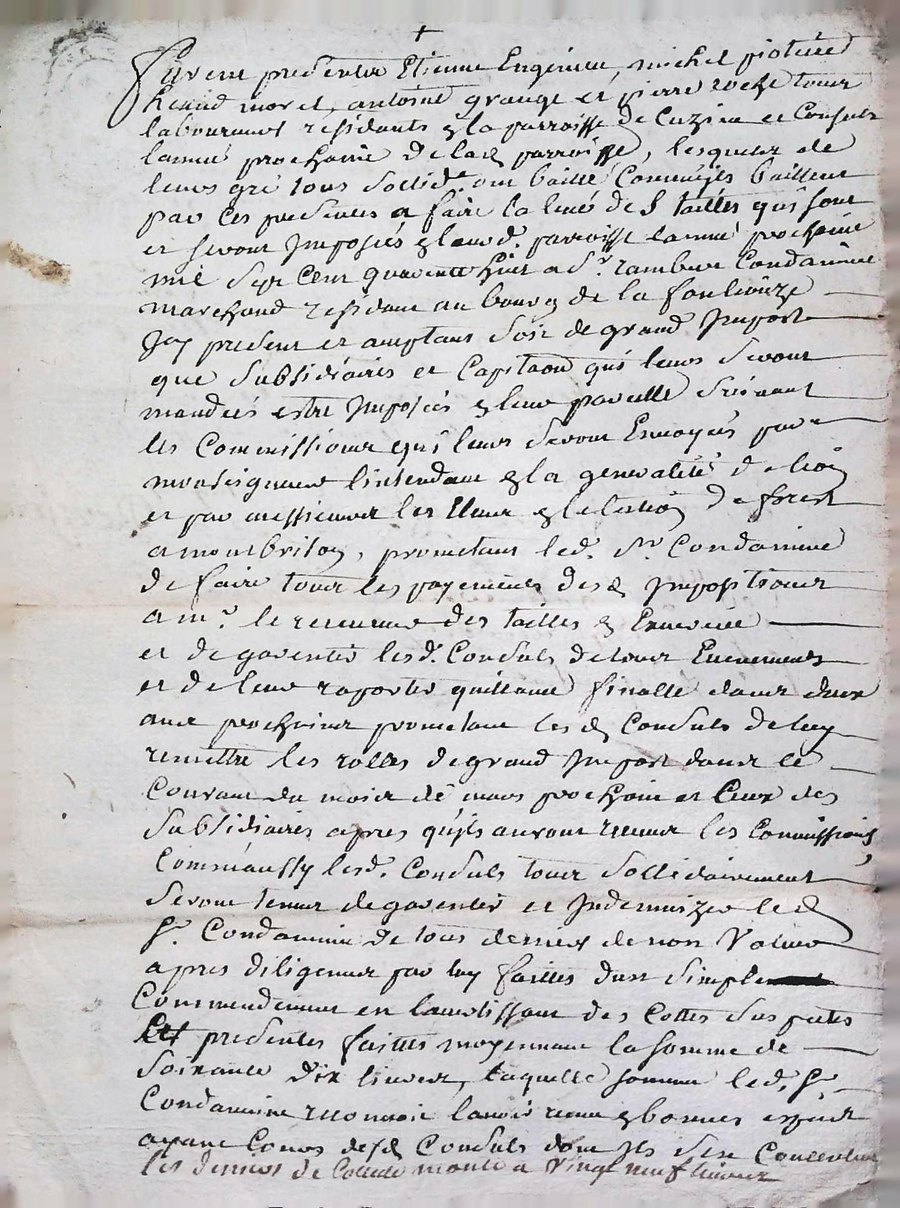 Furent presents Etienne Engerieu, michel
morel, antoine grange et pierre roche tous
laboureurs residants la parroisse de Cuzieu et Consuls
lannee prochaine de lad parroisse, lesquels de
leurs gré tous sollid.t ont baillé Comme ils baillent
par Ces presentes a faire la levé des tailles quy sont
et seront Imposées laud. parroisse lannee prochaine
mil sept Cent quarante huit a Sr. rambert Condamine
marchand residant au bourg de la foulliouze
Icy present et acceptant soit de grand Import
que subsidiaires et Capitaon quy leurs seront
mandées estre Imposées leur parcelle suivant
les Commissions quy leurs seront Envoyées par
monseigneur lintendant la generalité de lion
et par messieurs les Elus lelection de forest
a montbrison, prometant led. Sr. Condamine
de faire tous les payements desd Impositions
a mr. le receveur des tailles Exercice
et de garentir lesd. Consuls de tous Evenements
et de leur raporter quittance finalle dans deux
ans prochains prometant lesd Consuls de luy
remettre les rolles de grand Import dans le
Courant du mois de mars prochain et Ceux des
subsidiaires apres quils auront receus les Commissions
Comm'aussy lesd. Consuls tous sollidairement
seront tenus de garentir et Indemnizer led
Sr. Condamine de tous deniers de non Valeur
apres diligences par luy faittes dun simple
Commendement en lavertissant des Cottes suspettes
Les presentes faittes moyennant la somme de
soixante dix livres, laquelle somme led. Sr.
Condamine reconnoit lavoir receue bonnes especes
ayant Cours desd Consuls dont Ils se Contentent
les deniers de Collecte monte a Vingt neuf livres